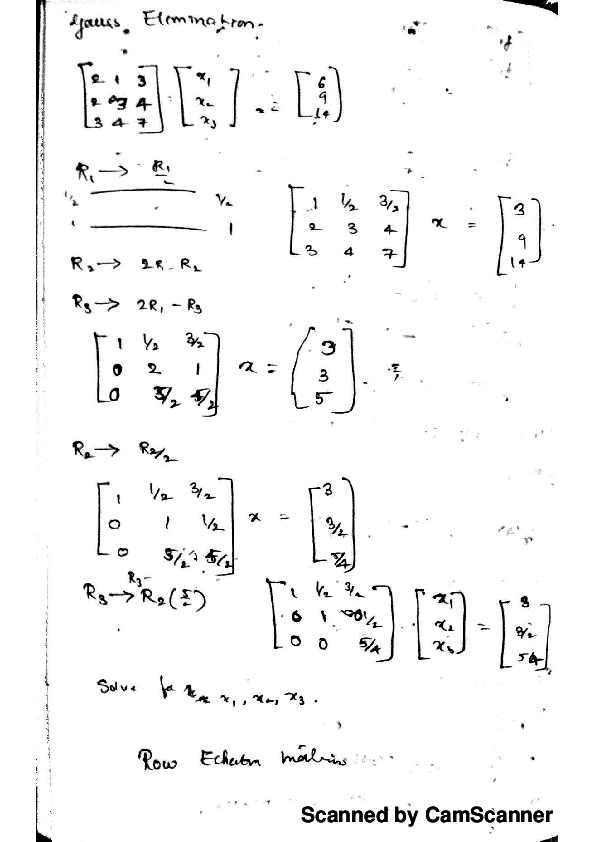 Gauss Elimination.
[2 1 3; 2 3 4; 3 4 7] [x1; x2; x3] = [6; 9; 14]
R1 → R1/2
1/2 1/2
1 1
[1 1/2 3/2; 2 3 4; 3 4 7] x = [3; 9; 14]
R2 → 2R - R2
R3 → 2R1 - R3
[1 1/2 3/2; 0 2 1; 0 5/2 5/2] x = [3; 3; 5]
R2 → R2/2
[1 1/2 3/2; 0 1 1/2; 0 5/2 5/2] x = [3; 3/2; 5/4]
R3 → R3- R2(5/2)
[1 1/2 3/2; 0 1 1/2; 0 0 5/4] [x1; x2; x3] = [3; 3/2; 5/4]
Solve for x1, x2, x3.
Row Echelon matrix
Scanned by CamScanner